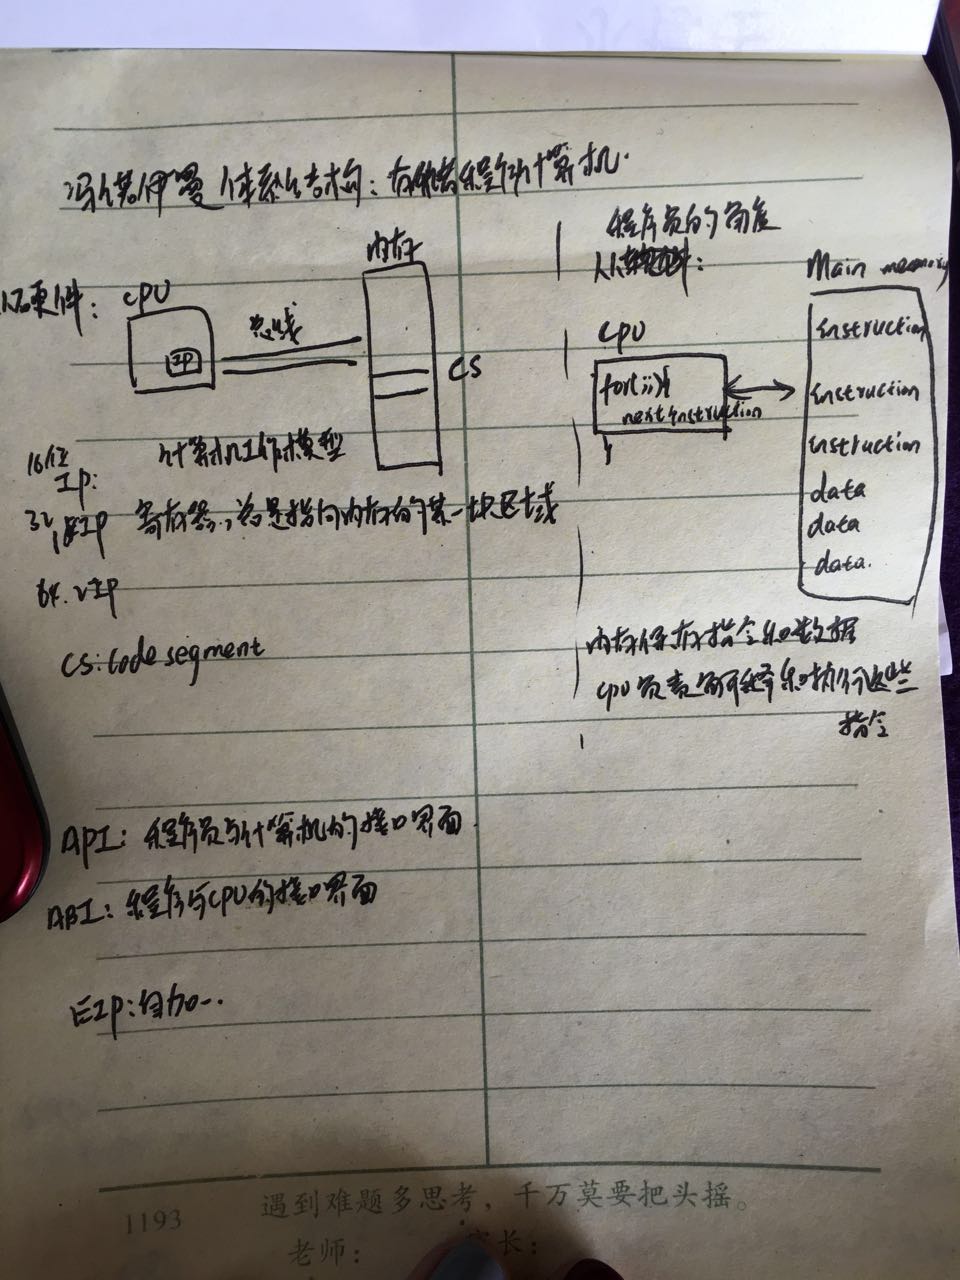 冯诺伊曼体系结构：存储程序计算机.
从硬件：
CPU
IP
总线
内存
CS
计算机工作模型
16位
IP:
32, EIP 寄存器, 总是指向内存的某一块区域
64. RIP
CS: Code segment
程序员的角度
CPU
for(;;){
next instruction
}
Main memory
instruction
instruction
instruction
data
data
data.
内存保存指令和数据
CPU负责解释和执行这些
指令
API: 程序员与计算机的接口界面
ABI: 程序与CPU的接口界面
EIP: 自加一.
1193
遇到难题多思考，千万莫要把头摇。
老师：
家长：